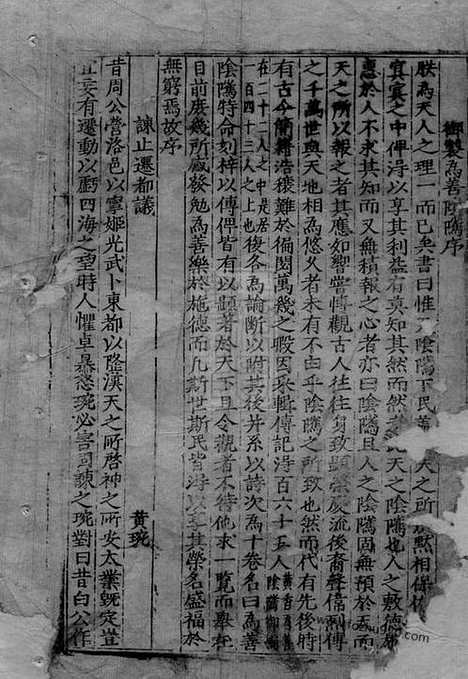 御製為善陰隲序
朕為天人之理一而已矣書曰惟天陰隲下民蓋天之所默相保
冥冥之中俾淂以享其利益有真知其然而然者此天之陰隲也人之敷德
惠於人不求其知而又無積報之心者亦曰陰隲且人之陰隲固無預於天而
天之所以報之者其應如響嘗博觀古人往往身致顯榮慶流後裔聲偹聞傳
之千萬世與天地相為悠久者未有不由乎陰隲之所致也然而代有先後時
有古今簡籍浩穰難於偏閱萬幾之暇因采輯傳記淂百六十五人
在二十二人之中是居
一百四十三人之上也後各為論斷以附其後并系以詩次為十卷名曰為善
陰隲特命刻梓以傳俾皆有以顯著於天下且令觀者不待他求一覧而舉在
目前庻幾所感發勉為善樂於施德而凡斯世斯民皆淂以享其榮名盛福於
無窮焉故序
諫止遷都議
黄琬
昔周公營洛邑以寧姬光武卜東都以隆漢天之所啓神之所安大業既定豈
宜妄有遷動以虧四海之望時人懼卓暴怒琬必害固諫之琬對曰昔白公作